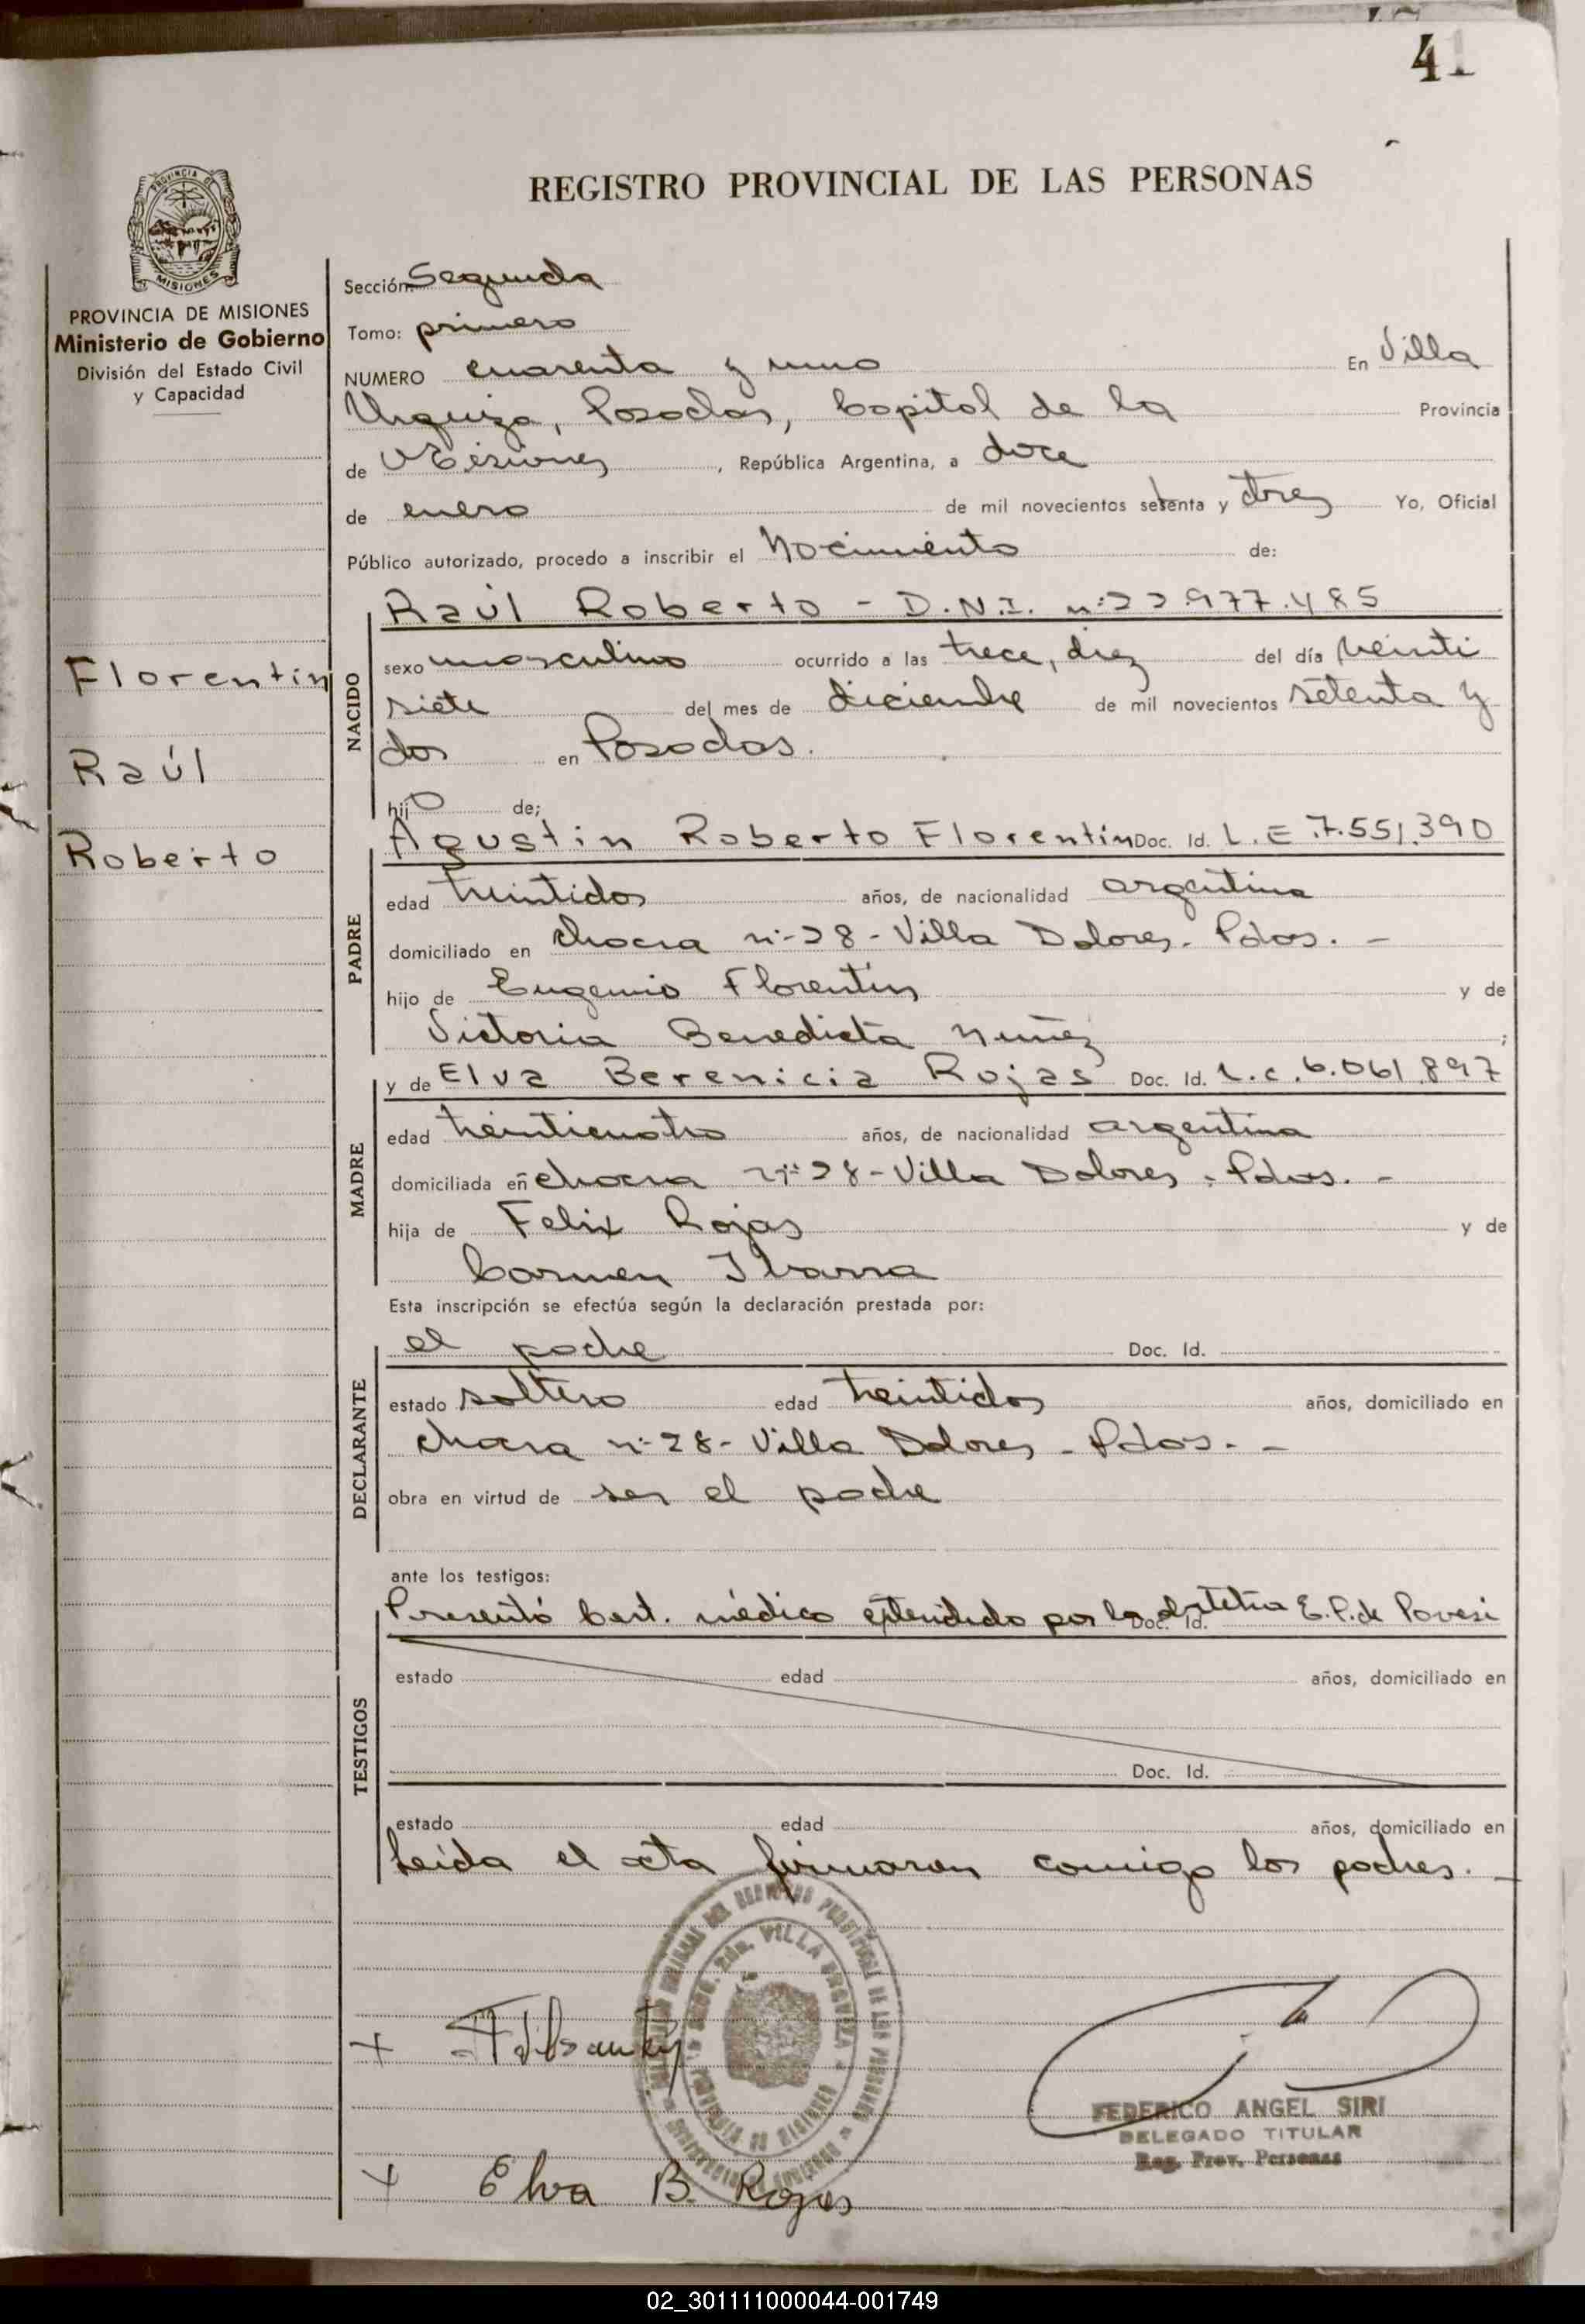 41
PROVINCIA DE
MISIONES
REGISTRO PROVINCIAL DE LAS PERSONAS
PROVINCIA DE MISIONES
Ministerio de Gobierno
División del Estado Civil
y Capacidad
Florentín
Raúl
Roberto
Sección: Segunda
Tomo: primero
NUMERO cuarenta y uno En Villa
Urquiza, Posadas, Capital de la Provincia
de Misiones, República Argentina, a doce
de enero de mil novecientos setenta y tres Yo, Oficial
Público autorizado, procedo a inscribir el Nacimiento de:
NACIDO
Raúl Roberto - D.N.I. nº 22.977.485
sexo masculino ocurrido a las trece, diez del día veinti
siete del mes de diciembre de mil novecientos setenta y
dos en Posadas.
hijo de;
PADRE
Agustin Roberto Florentín Doc. Id. L.E 7.551.390
edad treintidos años, de nacionalidad argentina
domiciliado en chacra nº 28 - Villa Dolores - Pdas. -
hijo de Eugenio Florentín y de
Victoria Benedicta Nuñez;
MADRE
y de Elva Berenicia Rojas Doc. Id. L.C. 6.061.897
edad treinticuatro años, de nacionalidad argentina
domiciliada en chacra nº 28 - Villa Dolores - Pdas. -
hija de Felix Rojas y de
Carmen Ibarra
Esta inscripción se efectúa según la declaración prestada por:
DECLARANTE
el padre Doc. Id.
estado soltero edad treintidos años, domiciliado en
chacra nº 28 - Villa Dolores - Pdas. -
obra en virtud de ser el padre
ante los testigos:
TESTIGOS
Presentó Cert. médico extendido por la obstetra E.P. de Povesi
Doc. Id.
estado edad años, domiciliado en
Doc. Id.
estado edad años, domiciliado en
Leída el acta firmaron conmigo los padres. -
VILLA URQUIZA
PROVINCIA DE MISIONES
FEDERICO ANGEL SIRI
DELEGADO TITULAR
Reg. Prov. Personas
Elva B. Rojas
02_301111000044-001749